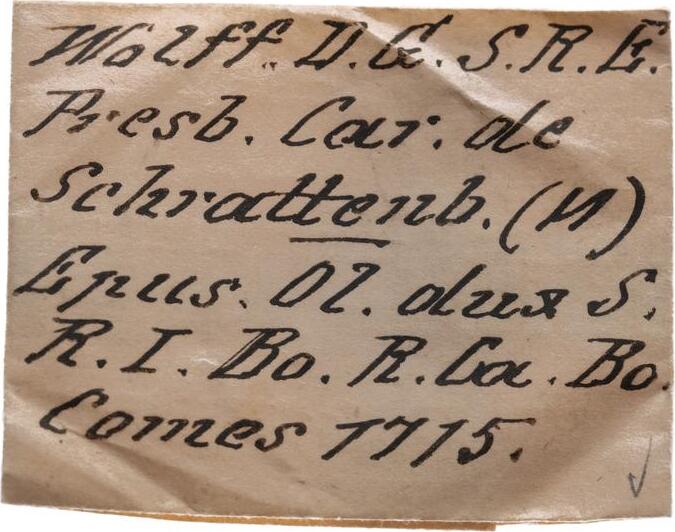 Wolff. D.G. S.R.E.
Presb. Car. de
Schrattenb. (N)
Epus. Ol. dux S.
R. I. Bo. R. Ca. Bo.
Comes 1715.